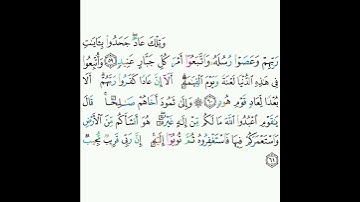 وَتِلْكَ عَادٌ ۖ جَحَدُوا۟ بِـَٔايَـٰتِ
رَبِّهِمْ وَعَصَوْا۟ رُسُلَهُۥ وَٱتَّبَعُوٓا۟ أَمْرَ كُلِّ جَبَّارٍ عَنِيدٍ ٥٩ وَأُتْبِعُوا۟
فِى هَـٰذِهِ ٱلدُّنْيَا لَعْنَةً وَيَوْمَ ٱلْقِيَـٰمَةِ ۗ أَلَآ إِنَّ عَادًا كَفَرُوا۟ رَبَّهُمْ ۗ أَلَا
بُعْدًا لِّعَادٍ قَوْمِ هُودٍ ٦٠ ۞ وَإِلَىٰ ثَمُودَ أَخَاهُمْ صَـٰلِحًا ۚ قَالَ
يَـٰقَوْمِ ٱعْبُدُوا۟ ٱللَّهَ مَا لَكُم مِّنْ إِلَـٰهٍ غَيْرُهُۥ ۖ هُوَ أَنشَأَكُم مِّنَ ٱلْأَرْضِ
وَٱسْتَعْمَرَكُمْ فِيهَا فَٱسْتَغْفِرُوهُ ثُمَّ تُوبُوٓا۟ إِلَيْهِ ۚ إِنَّ رَبِّى قَرِيبٌ مُّجِيبٌ
٦١